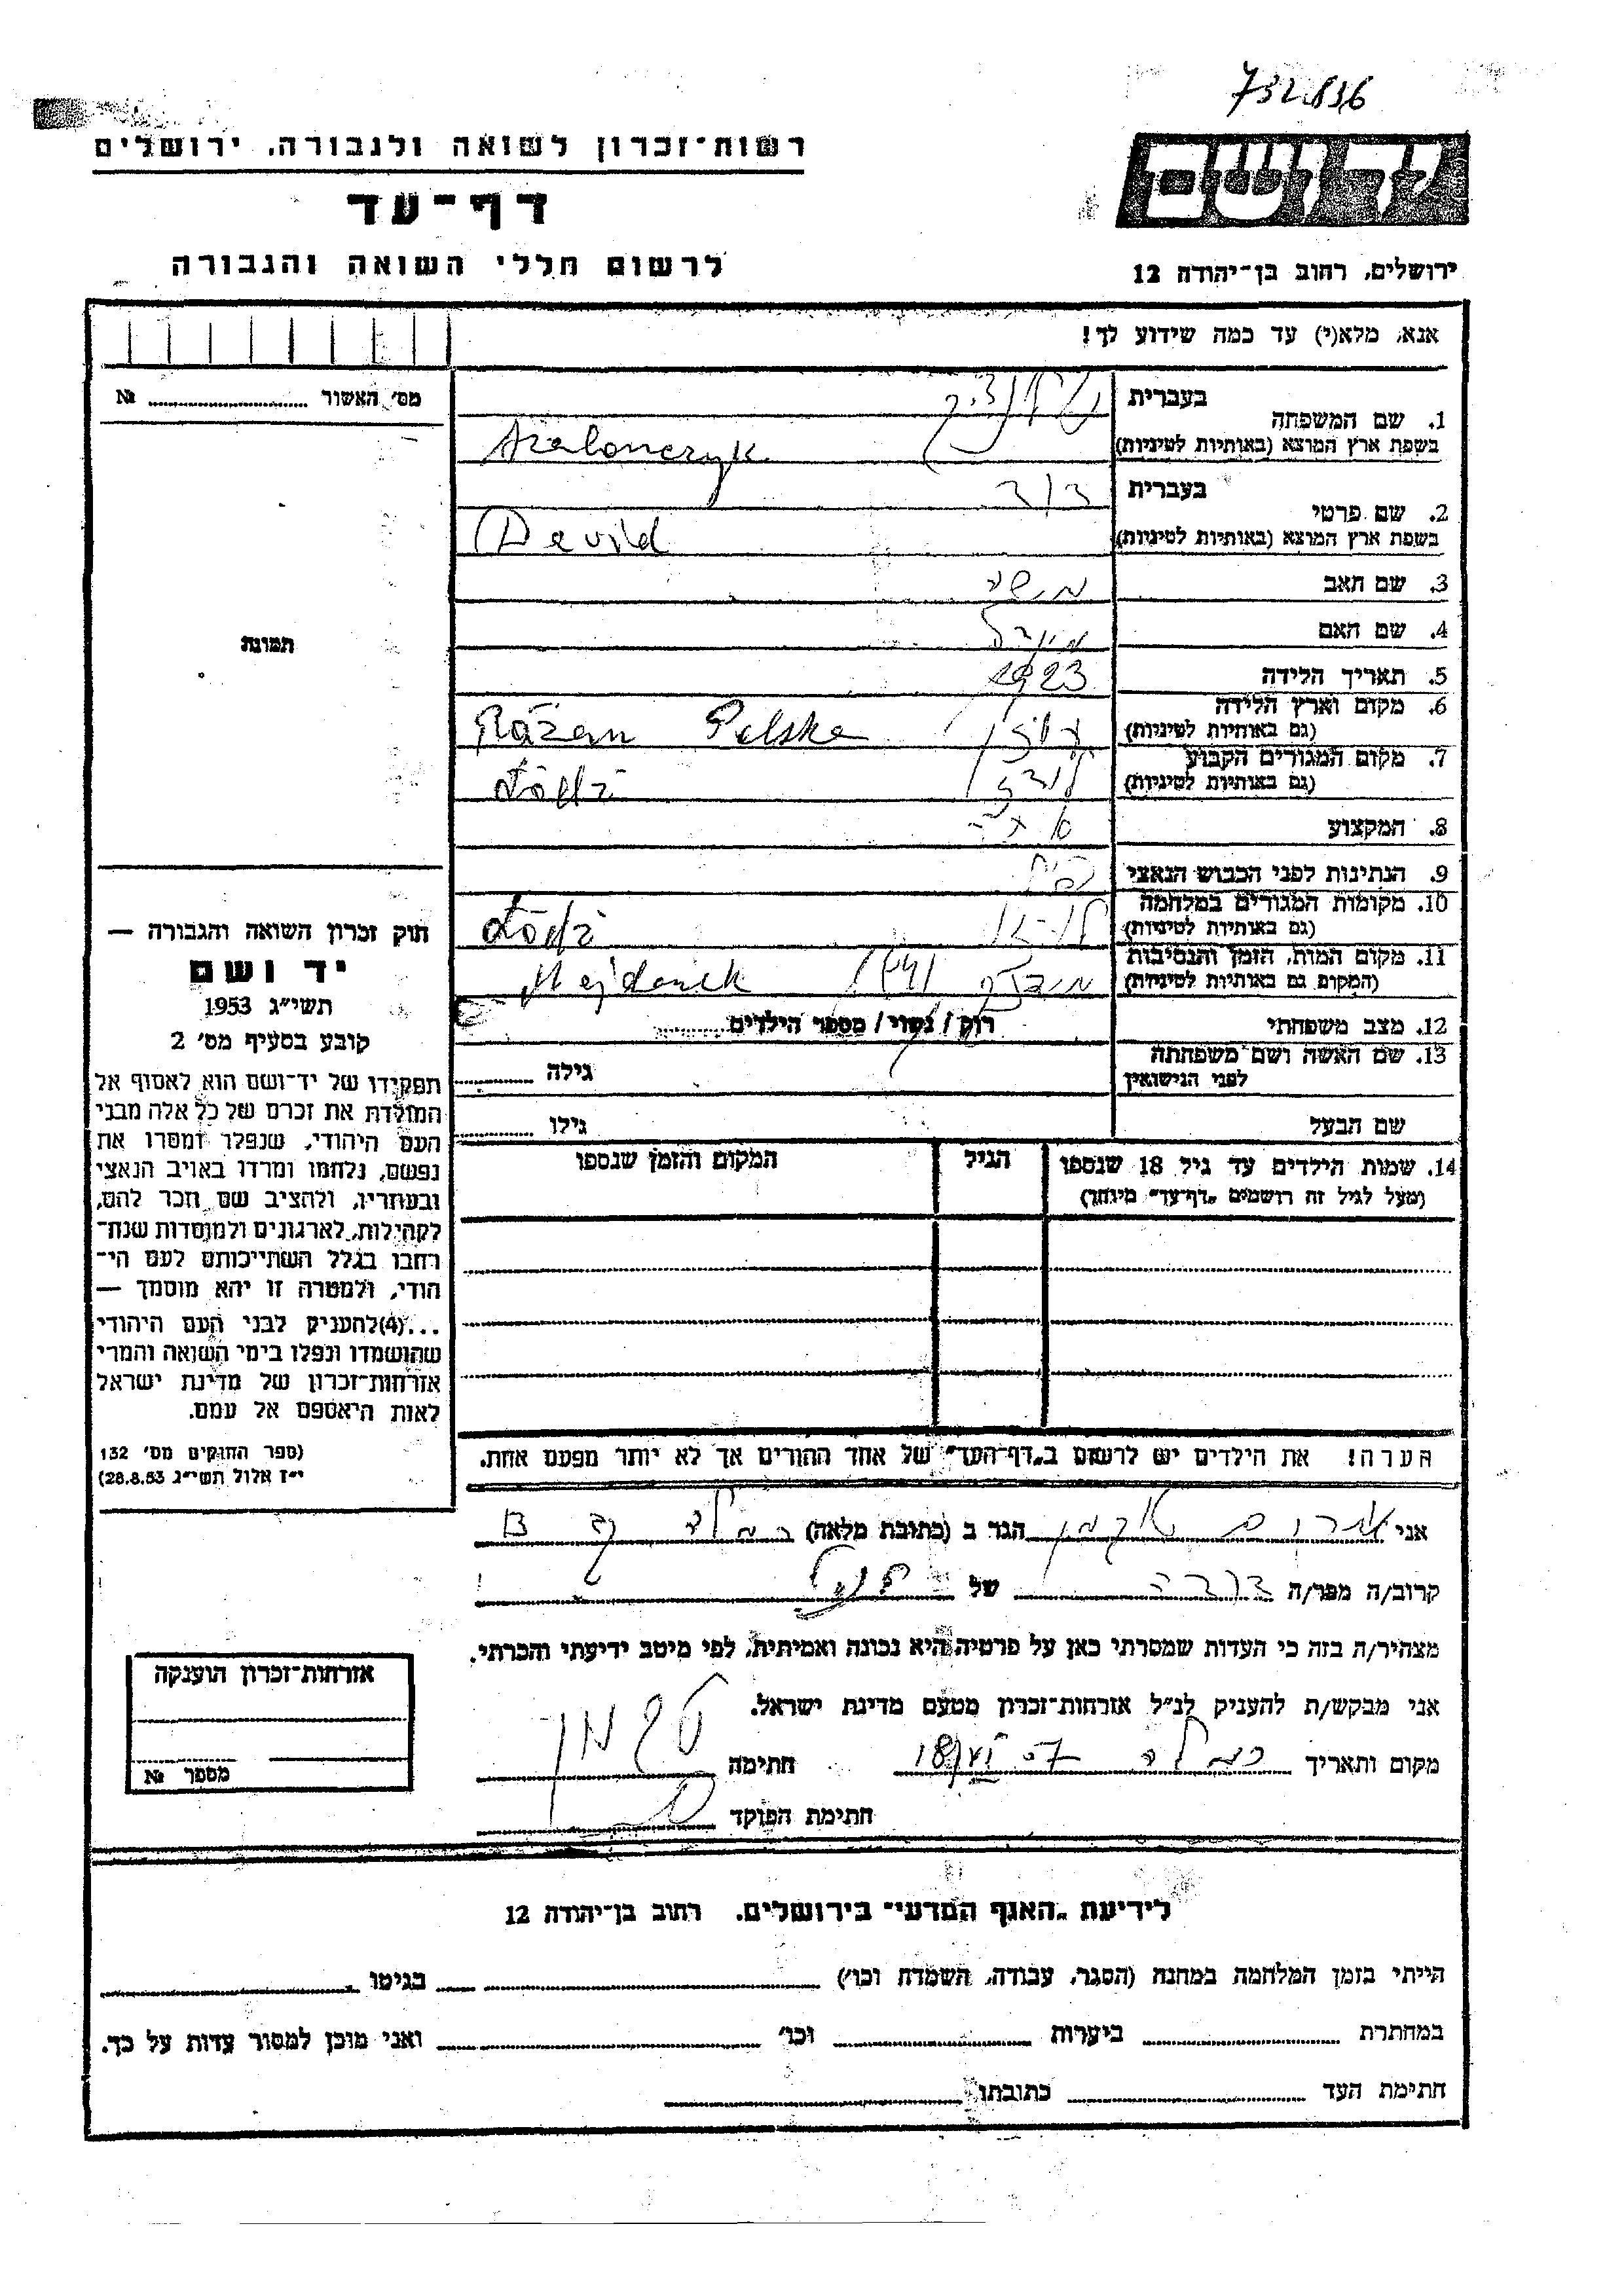 732.836
רשות־זכרון לשואה ולגבורה, ירושלים
דף־עד
לרשום חללי השואה והגבורה
ירושלים, רחוב בן־יהודה 12
אנא, מלא(י) עד כמה שידוע לך!
מס׳ האשור № ........
1. שם המשפחה
בעברית
בשפת ארץ המוצא (באותיות לטיניות)
2. שם פרטי
בעברית דוד
בשפת ארץ המוצא (באותיות לטיניות) David
3. שם האב משה
4. שם האם
5. תאריך הלידה 1923
6. מקום וארץ הלידה
(גם באותיות לטיניות) Różan Polska
7. מקום המגורים הקבוע
(גם באותיות לטיניות) לודז Łódź
8. המקצוע
9. הנתינות לפני הכבוש הנאצי
10. מקומות המגורים במלחמה
(גם באותיות לטיניות) Łódź
11. מקום המות, הזמן והנסיבות
(המקום גם באותיות לטיניות) מידנק Majdanek
12. מצב משפחתי רוק / נשוי / מספר הילדים........
13. שם האשה ושם משפחתה
לפני הנישואין
גילה ........
שם הבעל
גילו ........
14. שמות הילדים עד גיל 18 שנספו
(מעל לגיל זה רושמים „דף־עד״ מיוחד)
הגיל
המקום והזמן שנספו
הערה! את הילדים יש לרשום ב„דף־העד״ של אחד ההורים אך לא יותר מפעם אחת.
תמונה
חוק זכרון השואה והגבורה —
יד ושם
תשי״ג 1953
קובע בסעיף מס׳ 2
תפקידו של יד־ושם הוא לאסוף אל
המולדת את זכרם של כל אלה מבני
העם היהודי, שנפלו ומסרו את
נפשם, נלחמו ומרדו באויב הנאצי
ובעוזריו, ולהציב שם וזכר להם,
לקהילות, לארגונים ולמוסדות שנח־
רבו בגלל השתייכותם לעם הי־
הודי, ולמטרה זו יהא מוסמך —
...(4) להעניק לבני העם היהודי
שהושמדו ונפלו בימי השואה והמרי
אזרחות־זכרון של מדינת ישראל
לאות היאספם אל עמם.
(ספר החוקים מס׳ 132
י״ז אלול תשי״ג 28.8.53)
אני הגר ב (כתובת מלאה)
קרוב/ה מפר/ה של
מצהיר/ה בזה כי העדות שמסרתי כאן על פרטיה היא נכונה ואמיתית, לפי מיטב ידיעתי והכרתי.
אני מבקש/ת להעניק לנ״ל אזרחות־זכרון מטעם מדינת ישראל.
מקום ותאריך רמלה חתימה
חתימת הפוקד
אזרחות־זכרון הוענקה
מספר №
לידיעת „האגף המדעי״ בירושלים. רחוב בן־יהודה 12
הייתי בזמן המלחמה במחנה (הסגר, עבודה, השמדה וכו׳) ........ בגיטו ........
במחתרת ........ ביערות ........ וכו׳ ........ ואני מוכן למסור עדות על כך.
חתימת העד ........ כתובתו ........